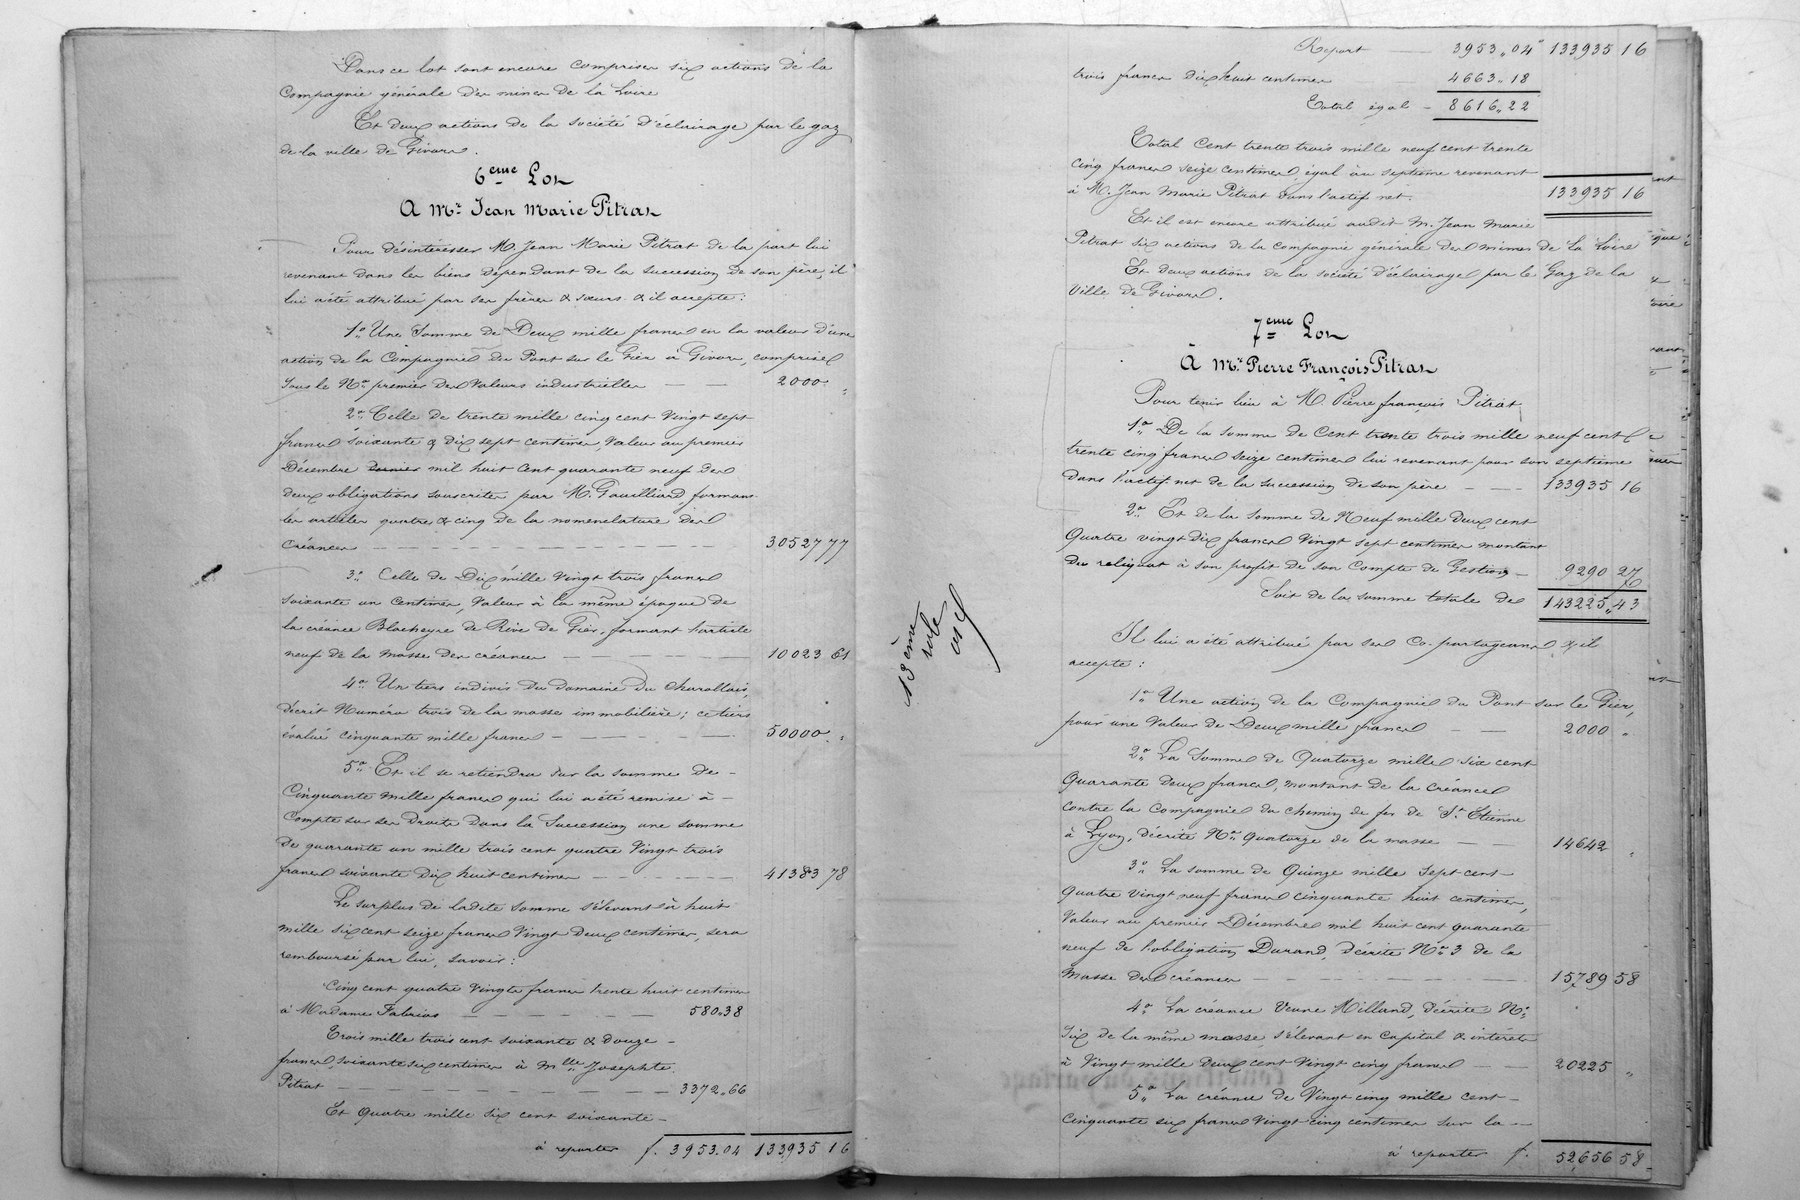 Dans ce lot sont encore comprises six actions de la
Compagnie générale des mines de la Loire
Et deux actions de la société d'éclairage par le gaz
de la ville de Givors.
6eme Lot
A Mr. Jean Marie Pitrat
Pour désintéresser M. Jean Marie Pitrat de la part lui
revenant dans les biens dépendant de la succession de son père, il
lui a été attribué par ses frères & sœurs & il accepte:
1o. Une Somme de Deux mille francs en la valeur d'une
action de la Compagnie du Pont sur le Gier a Givors, comprise
sous le No. premier des valeurs industrielles — — 2000 "
2o. Celle de trente mille cinq cent vingt sept
francs soixante & dix sept centimes, valeur au premier
Décembre dernier mil huit cent quarante neuf des
deux obligations souscrites par M. Gouilliard formant
les articles quatre & cinq de la nomenclature des
créances — — — 30527 77
3o. Celle de Dix mille vingt trois francs
soixante un centimes, valeur à la même époque de
la créance Blacheyre de Rive de Gier, formant l'article
neuf de la masse des créances — — — 10023 61
4o. Un tiers indivis du domaine du Charollais,
décrit Numéro trois de la masse immobilière; ce tiers
évalué cinquante mille francs — — — 50000 "
5o. Et il se retiendra sur la somme de -
Cinquante mille francs qui lui a été remise à -
Compte sur ses droits dans la Succession une somme
de quarante un mille trois cent quatre vingt trois
francs soixante dix huit centimes — — — 41383 78
Le surplus de ladite somme s'élevant à huit
mille six cent seize francs vingt deux centimes, sera
remboursé par lui, savoir:
Cinq cent quatre vingts francs trente huit centimes
à Madame Fabrias — — — 580.38
Trois mille trois cent soixante & douze -
francs, soixante six centimes à Mlle Josephte
Pitrat — — — 3372.66
Et Quatre mille six cent soixante -
à reporter f. 3953.04 133935 16
13eme
role
Report — 3953.04 133935 16
trois francs dix huit centimes 4663.18
Total égal - 8616.22
Total Cent trente trois mille neuf cent trente
cinq francs seize centimes, égal au septieme revenant
à M. Jean Marie Pitrat dans l'actif net. 133935 16
Et il est encore attribué audit M. Jean Marie
Pitrat six actions de la compagnie générale des mines de la Loire
Et deux actions de la société d'éclairage par le Gaz de la
Ville de Givors.
7eme Lot
A Mr. Pierre François Pitrat
Pour tenir lieu à M. Pierre françois Pitrat
1o. De la somme de Cent trente trois mille neuf cent
trente cinq francs seize centimes lui revenant pour son septieme
dans l'actif net de la succession de son père — — 133935 16
2o. Et de la somme de Neuf mille Deux cent
Quatre vingt dix francs vingt sept centimes montant
du reliquat à son profit de son Compte de Gestion — 9290 27
Soit de la somme totale de 143225.43
Il lui a été attribué par ses Co. partageans & il
accepte:
1o. Une action de la Compagnie du Pont sur le Gier,
pour une valeur de Deux mille francs — — 2000 "
2o. La Somme de Quatorze mille six cent
Quarante deux francs, montant de la créance
contre la Compagnie du Chemin de fer de St. Etienne
à Lyon, décrite No. Quatorze de la masse — — 14642 "
3o. La somme de Quinze mille Sept cent
Quatre vingt neuf francs cinquante huit centimes,
Valeur au premier Décembre mil huit cent quarante
neuf de l'obligation Durand, décrite No. 3 de la
masse des créances — — — 15789 58
4o. La créance Veuve Milland, décrite No.
Six de la même masse s'élevant en Capital & intérêts
à Vingt mille Deux cent vingt cinq francs — — 20225 "
5o. La créance de Vingt cinq mille cent -
Cinquante six francs vingt cinq centimes sur la -
à reporter f. 52656 58